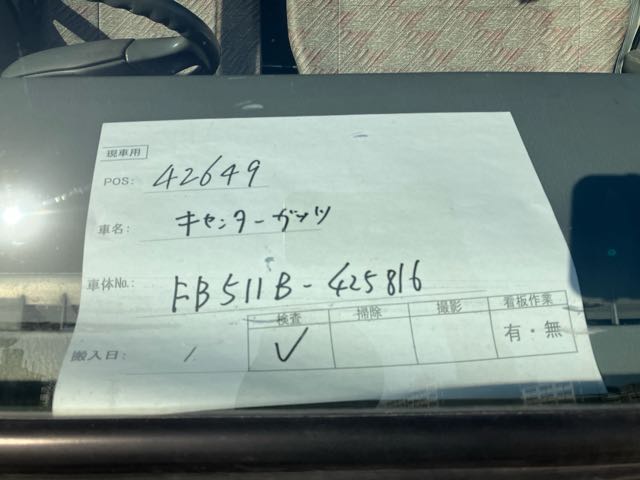 現車用
POS: 42649
車名: キャンターガッツ
車体No.: FB511B-425816
検査 掃除 撮影 看板作業
搬入日: / ✓ 有・無